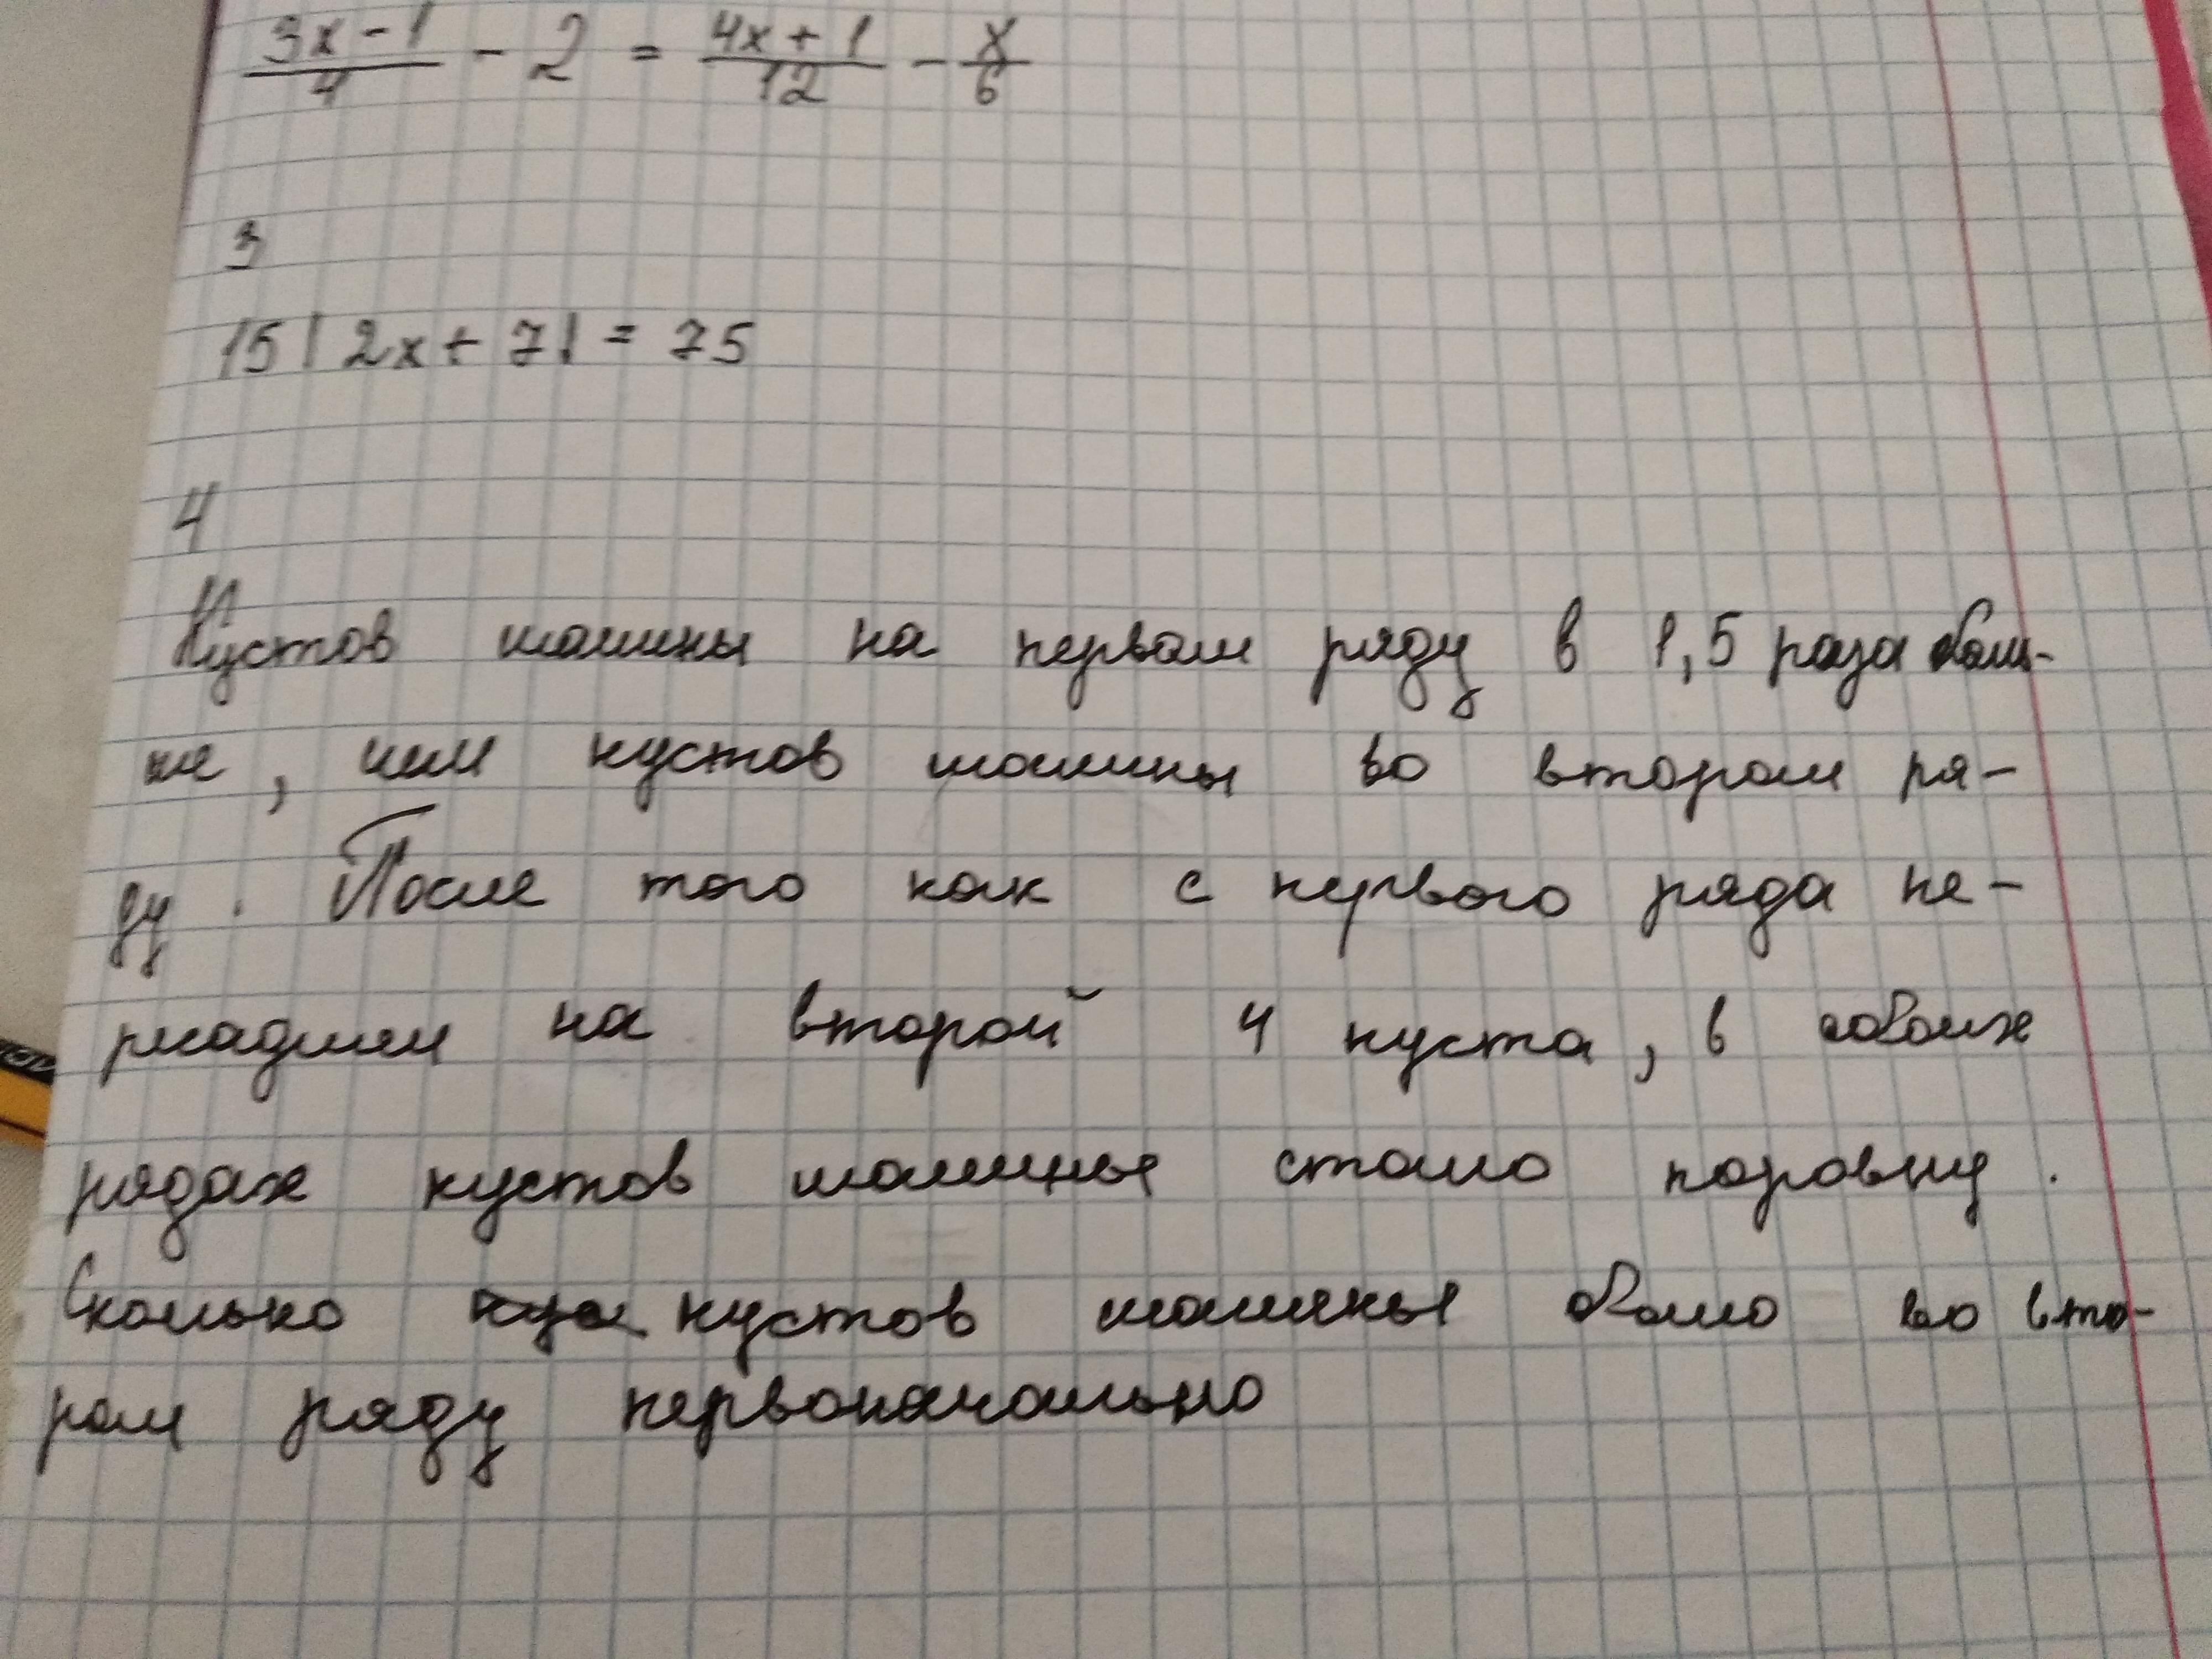 (3x - 1)/4 - 2 = (4x + 1)/12 - x/6
3
15|2x + 7| = 75
4
Кустов малины на первом ряду в 1,5 раза боль-
ше, чем кустов малины во втором ря-
ду. После того как с первого ряда пе-
ресадили на второй 4 куста, в обоих
рядах кустов малины стало поровну.
Сколько кустов малины было во вто-
ром ряду первоначально